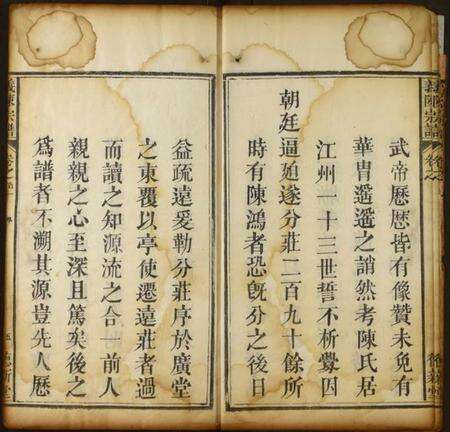 武帝歷歷皆有像贊未免有
華胄遥遥之誚然考陳氏居
江州一十三世誓不析㸑因
朝廷逼廹遂分莊二百九十餘所
時有陳鴻者恐既分之後日
益疏遠爰勒分莊序於廣堂
之東覆以亭使遷遠莊者過
而讀之知源流之合一前人
親親之心至深且篤矣後之
爲譜者不溯其源豈先人歷
義陳宗譜